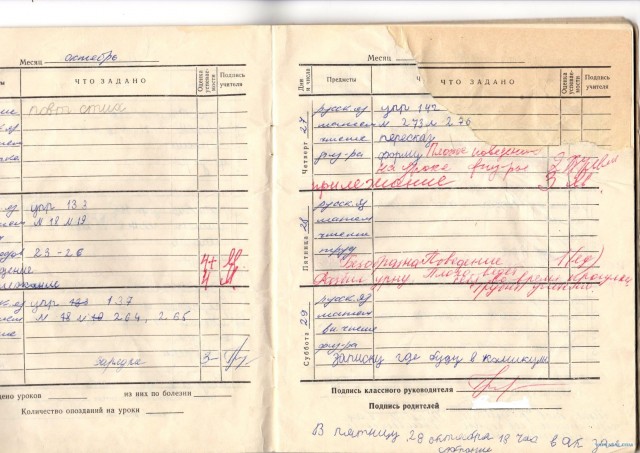 Месяц октябрь
ЧТО ЗАДАНО
Оценка успевае-мости
Подпись учителя
упр 132
м 18 м 19
23-26
4+
4
упр 137
м 264, 265
зарядка
3-
из них по болезни
Количество опозданий на уроки
Месяц
Дни и числа
Предметы
ЧТО ЗАДАНО
Оценка успевае-мости
Подпись учителя
Четверг 27
русск.яз упр 142
матем м 273 м 276
чтение пересказ
физ-ра форму Плохое поведение
на уроке физ-ры 2
прилежание 3
Пятница 28
русск.яз
матем
чтение
труд
Безобразное поведение 1 (ед)
урну. Плохо ведёт во время
Суббота 29
русск.яз
матем
вн.чтение
физ-ра
записку где буду в каникулы
Подпись классного руководителя
Подпись родителей
В пятницу 28 октября 18 час в